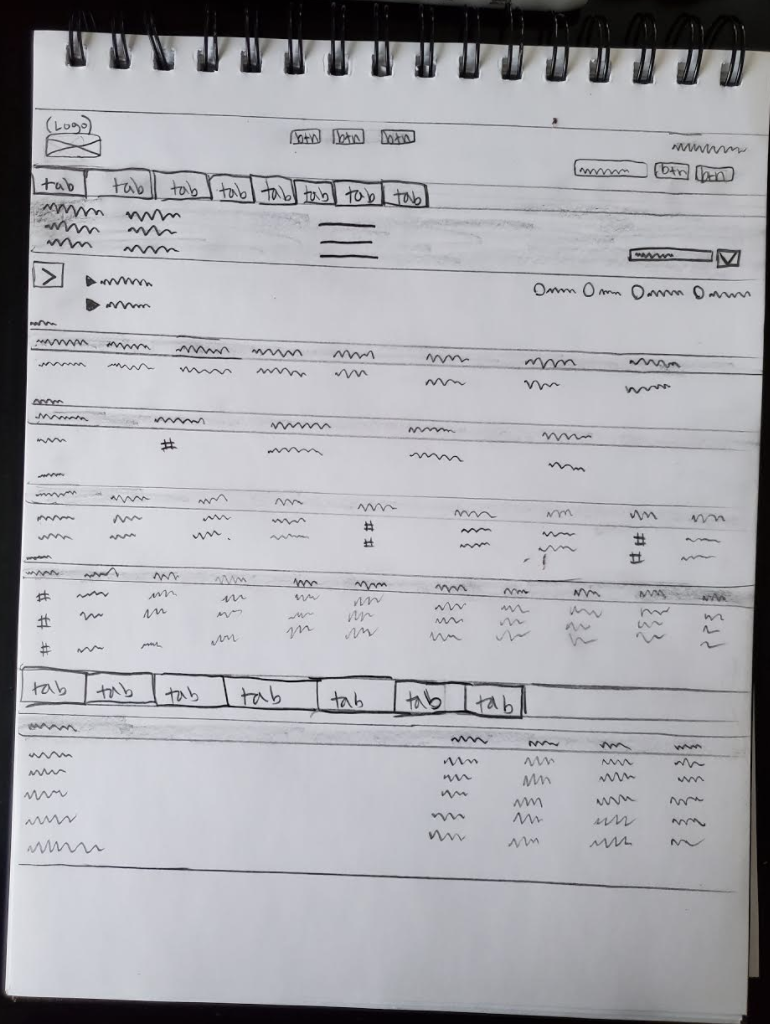 (Logo)
btn btn btn
btn btn
tab tab tab tab tab tab tab tab
#
#
#
#
#
#
#
#
tab tab tab tab tab tab tab